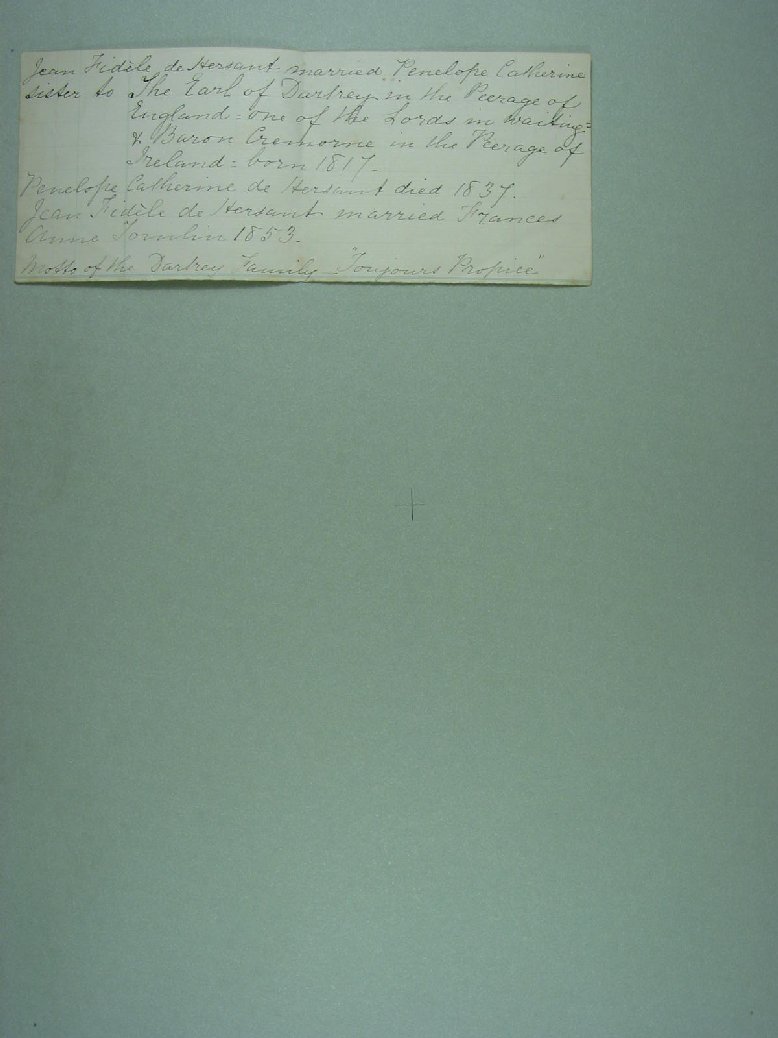 Jean Fidèle de Hersant married Penelope Catherine
sister to The Earl of Dartrey in the Peerage of
England = one of the Lords in waiting =
& Baron Cremorne in the Peerage of
Ireland = born 1817 -
Penelope Catherine de Hersant died 1837.
Jean Fidèle de Hersant married Frances
Anne Tomlin 1853.
Motto of the Dartrey Family - "Toujours Propice"